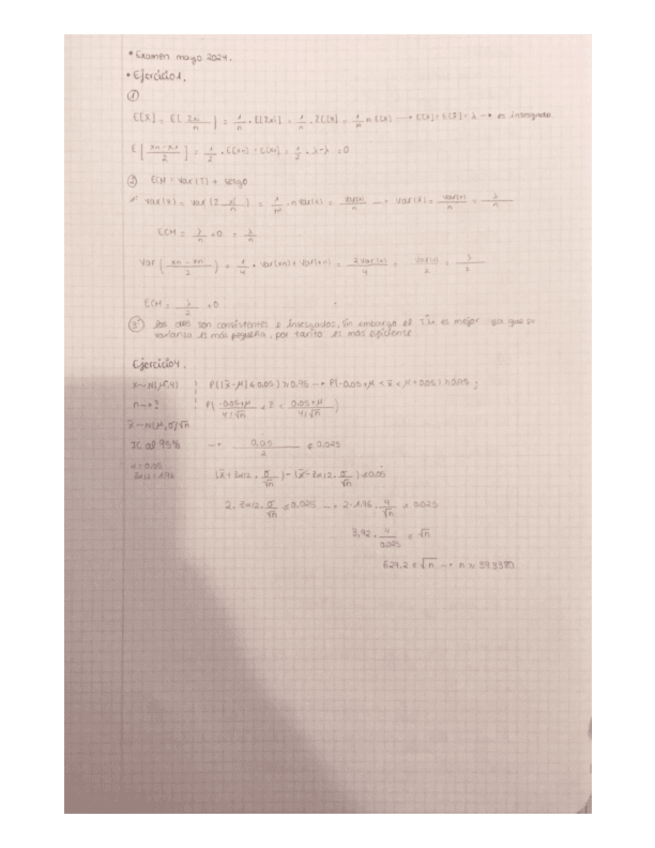 * Examen mayo 2024.
* Ejercicio 1.
①
E[x̄] = E[Σxi/n] = 1/n · E[Σxi] = 1/n · ΣE[x] = 1/n n E(x) → E(x) = E(x̄) = λ → es insesgado.
E[(xn - x1)/2] = 1/2 · E(xn) - E(x1) = 1/2 · λ - λ = 0
② ECM = Var(T) + sesgo
Var(x̄) = Var(Σ xi/n) = 1/n² · n Var(x) = Var(x)/n → Var(x̄) = Var(x)/n = λ/n
ECM = λ/n + 0 = λ/n
Var((xn - xn)/2) = 1/4 · Var(xn) + Var(xn) = 2Var(x)/4 = Var(x)/2 = λ/2
ECM = λ/2 + 0
③ Los dos son consistentes e insesgados, sin embargo el es mejor ya que su
varianza es más pequeña, por tanto es más eficiente.
Ejercicio 4.
x~N(μ,4) P(|x̄-μ| ≤ 0.05) ≥ 0.95 → P(-0.05+μ < x̄ < μ+0.05) ≥
n→? P(-0.05+μ/4/√n < Z < 0.05+μ/4/√n)
x̄~N(μ,σ/√n
IC al 95% → 0.05/2 ≤ 0.025
α=0.05 (x̄ + zα/2 · σ/√n) - (x̄ - zα/2 · σ/√n) ≤ 0.05
zα/2 = 1.96
2 · zα/2 · σ/√n ≤ 0.025 → 2 · 1.96 · 4/√n ≤ 0.025
3,92 · 4/0.025 ≤ √n
627.2 ≤ √n → n ≥ 393380